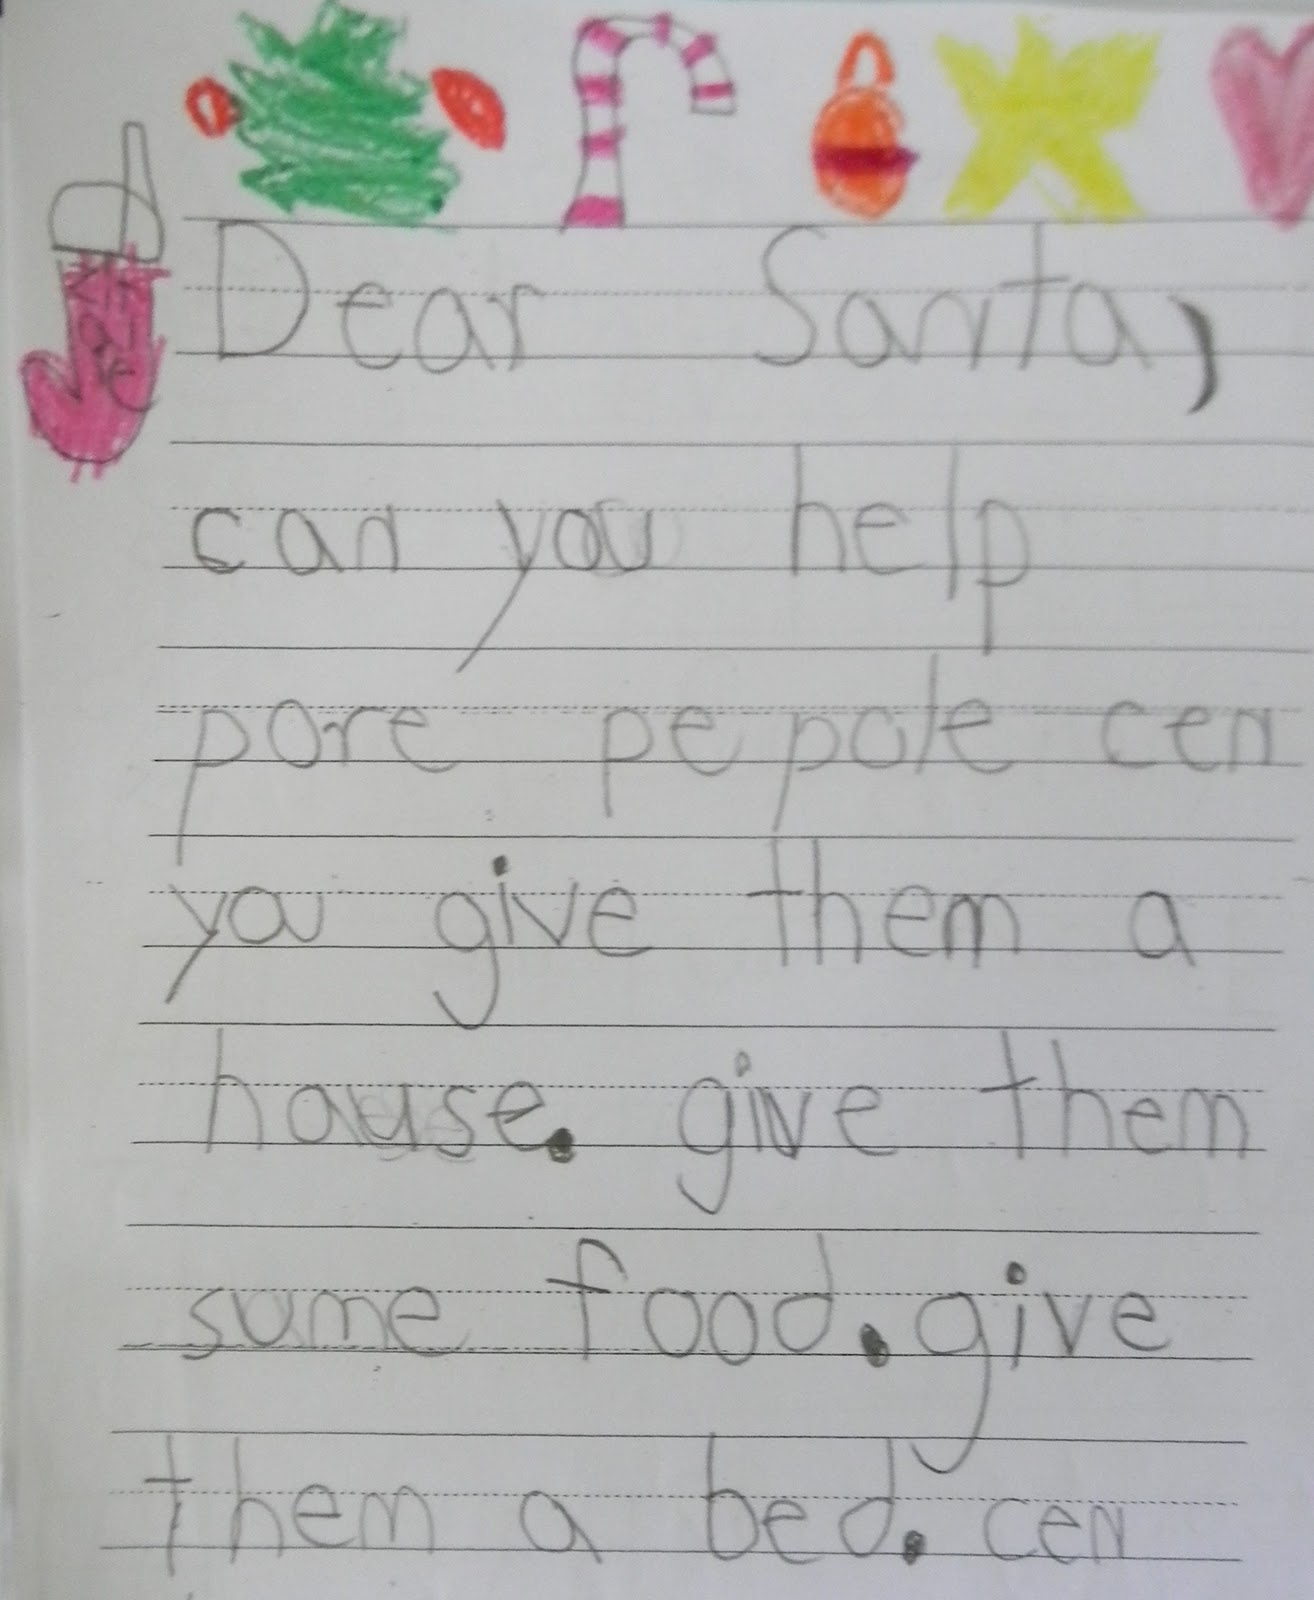 Dear Santa,
can you help
pore pepole cen
you give them a
hause. give them
sume food. give
them a bed. cen